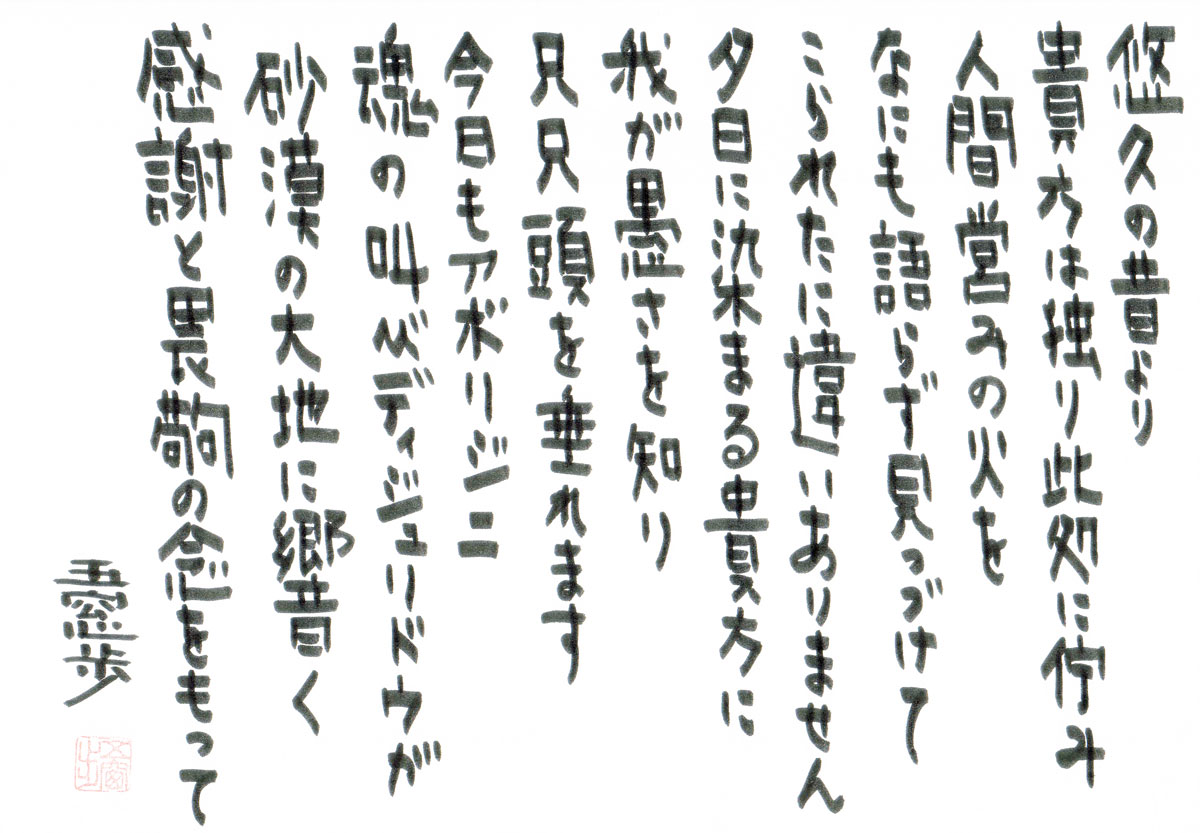 悠久の昔より
貴方は独り此処に佇み
人間営みの火を
なにも語らず見つづけて
こられたに違いありません
夕日に染まる貴方に
我が愚さを知り
只只頭を垂れます
今日もアボリジニ
魂の叫びディジュリドウが
砂漠の大地に響く
感謝と畏敬の念をもって
五窓歩